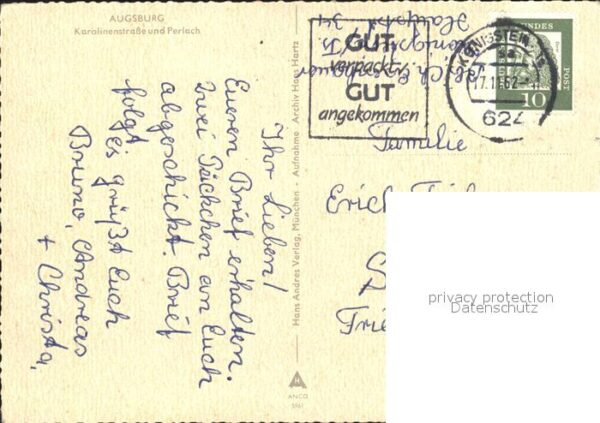 AUGSBURG
Karolinenstraße und Perlach
Ihr Lieben!
Eueren Brief erhalten.
Zwei Päckchen an Euch
abgeschickt. Brief
folgt
es grüßt Euch
Bruno, Andreas
+ Christa,
Hans Andres Verlag, München - Aufnahme - Archiv Hans Hartz
H
ANCO
5961
Königstein/Ts.
34
GUT
verpackt
GUT
angekommen
KÖNIGSTEIN
17.11.62
624
BUNDES
POST
10
Familie
Erich
privacy protection
Datenschutz